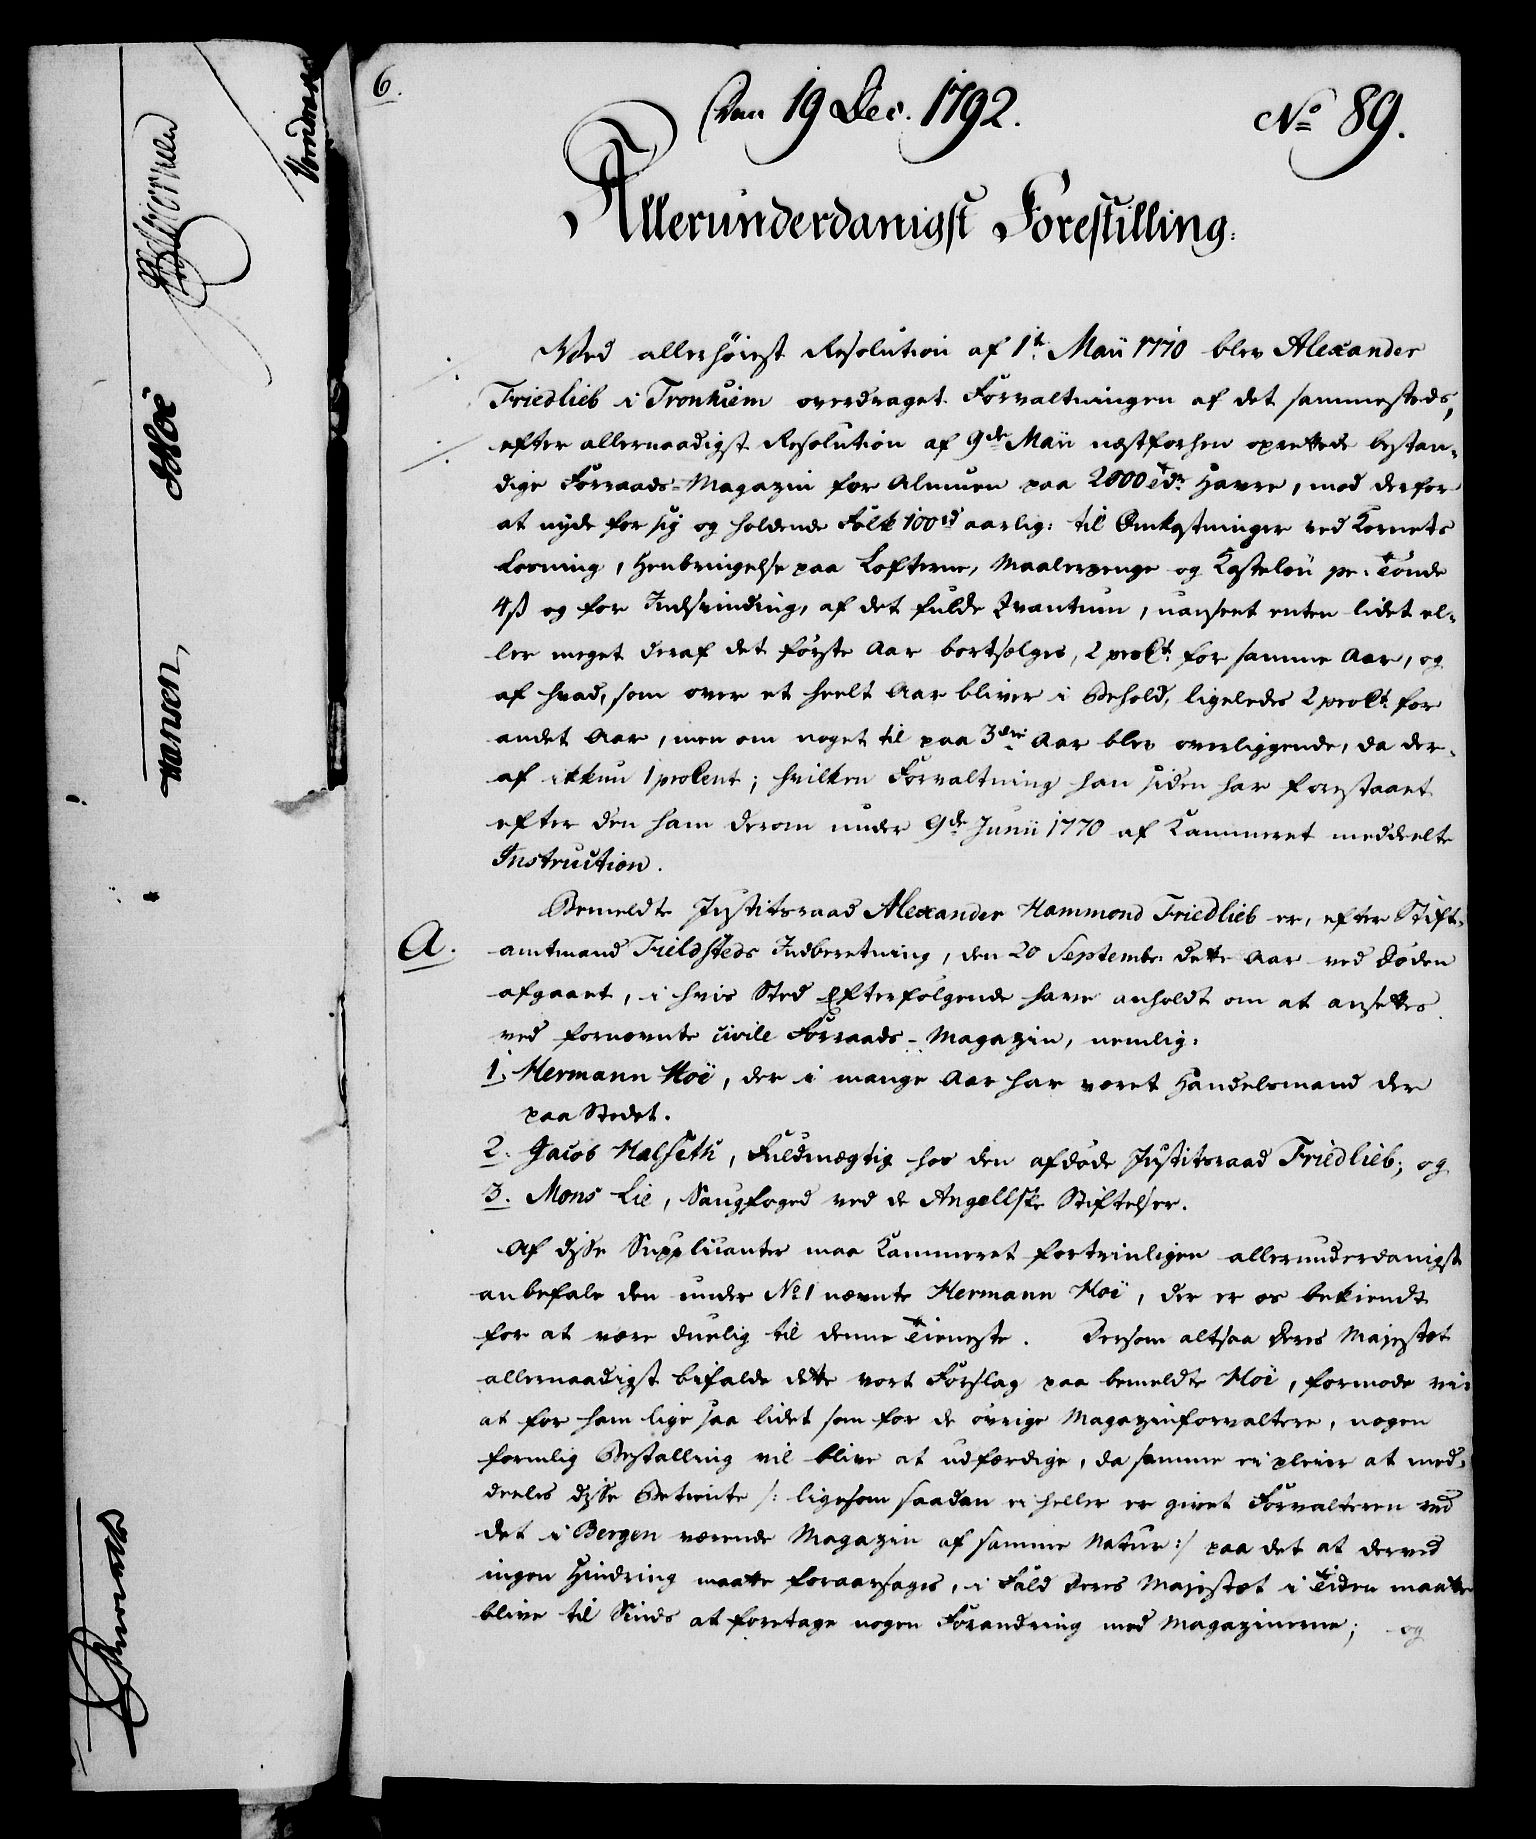 6.
Den 19 Dec. 1792.
No 89.
Allerunderdanigst Forestilling.
Ved allerhöiest Resolution af 1te Maii 1770 blev Alexander
Friedlieb i Tronhiem overdraget Forvaltningen af det sammesteds,
efter allernaadigst Resolution af 9de Maii næstforhen oprettede bestan-
dige Forraads-Magazin for Almuen paa 2000 Tdr Havre, mod derfor
at nyde for sig og holdende Folk 100 rd aarlig: til Omkostninger ved Kornets
Losning, Henbringelse paa Lofterne, Maalerpenge og Kasteløn pr. Tønde
4ß og for Indsvinding, af det fulde Qvantum, uanseet enten lidet el-
ler meget deraf det første Aar bortsælges, 2 proCt. for samme Aar, og
af hvad, som over et heelt Aar bliver i Behold, ligeledes 2 proCt. for
andet Aar, men om noget til paa 3die Aar blev overliggende, da der-
af ikkun 1 proCent; hvilken Forvaltning han siden har forestaaet
efter den ham derom under 9de Junii 1770 af Kammeret meddeelte
Instruction.
Bemeldte Justitsraad Alexander Hammond Friedlieb er, efter Stift-
A.
amtmand Fieldsteds Indberetning, den 20 Septembr. dette Aar ved Døden
afgaaet, i hvis Sted Efterfølgende have anholdt om at ansettes
ved fornævnte civile Forraads-Magazin, nemlig:
1. Hermann Hoë, der i mange Aar har været Handelsmand der
paa Stedet.
2. Jacob Halseth, Fuldmægtig hos den afdøde Justitsraad Friedlieb; og
3. Mons Lie, Saugfoged ved de Angellske Stiftelser.
Af disse Supplicanter maa Kammeret fortrinligen allerunderdanigst
anbefale den under No 1 nævnte Hermann Hoë, der er os bekiendt
for at være duelig til denne Tieneste. Dersom altsaa Deres Majestæt
allernaadigst bifalde dette vort Forslag paa bemeldte Hoë, formode vi:
at for ham lige saa lidet som for de övrige Magazinforvaltere, nogen
formlig Bestalling vil blive at udfærdige, da samme ei pleier at med-
deeles disse Betiente /: ligesom saadan ei heller er givet Forvalteren ved
det i Bergen værende Magazin af samme Natur :/ paa det at derved
ingen Hindring maatte foraarsages, i Fald Deres Majestæt i Tiden maatte
blive til Sinds at foretage nogen Forandring med Magazinerne; og
Hansen,